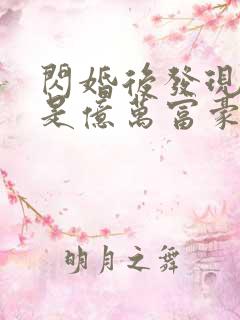 閃婚後發現
是億萬富豪
明月之舞